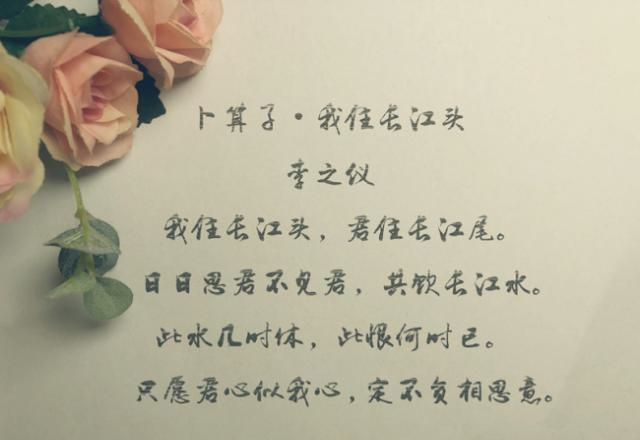 卜算子·我住长江头
李之仪
我住长江头，君住长江尾。
日日思君不见君，共饮长江水。
此水几时休，此恨何时已。
只愿君心似我心，定不负相思意。